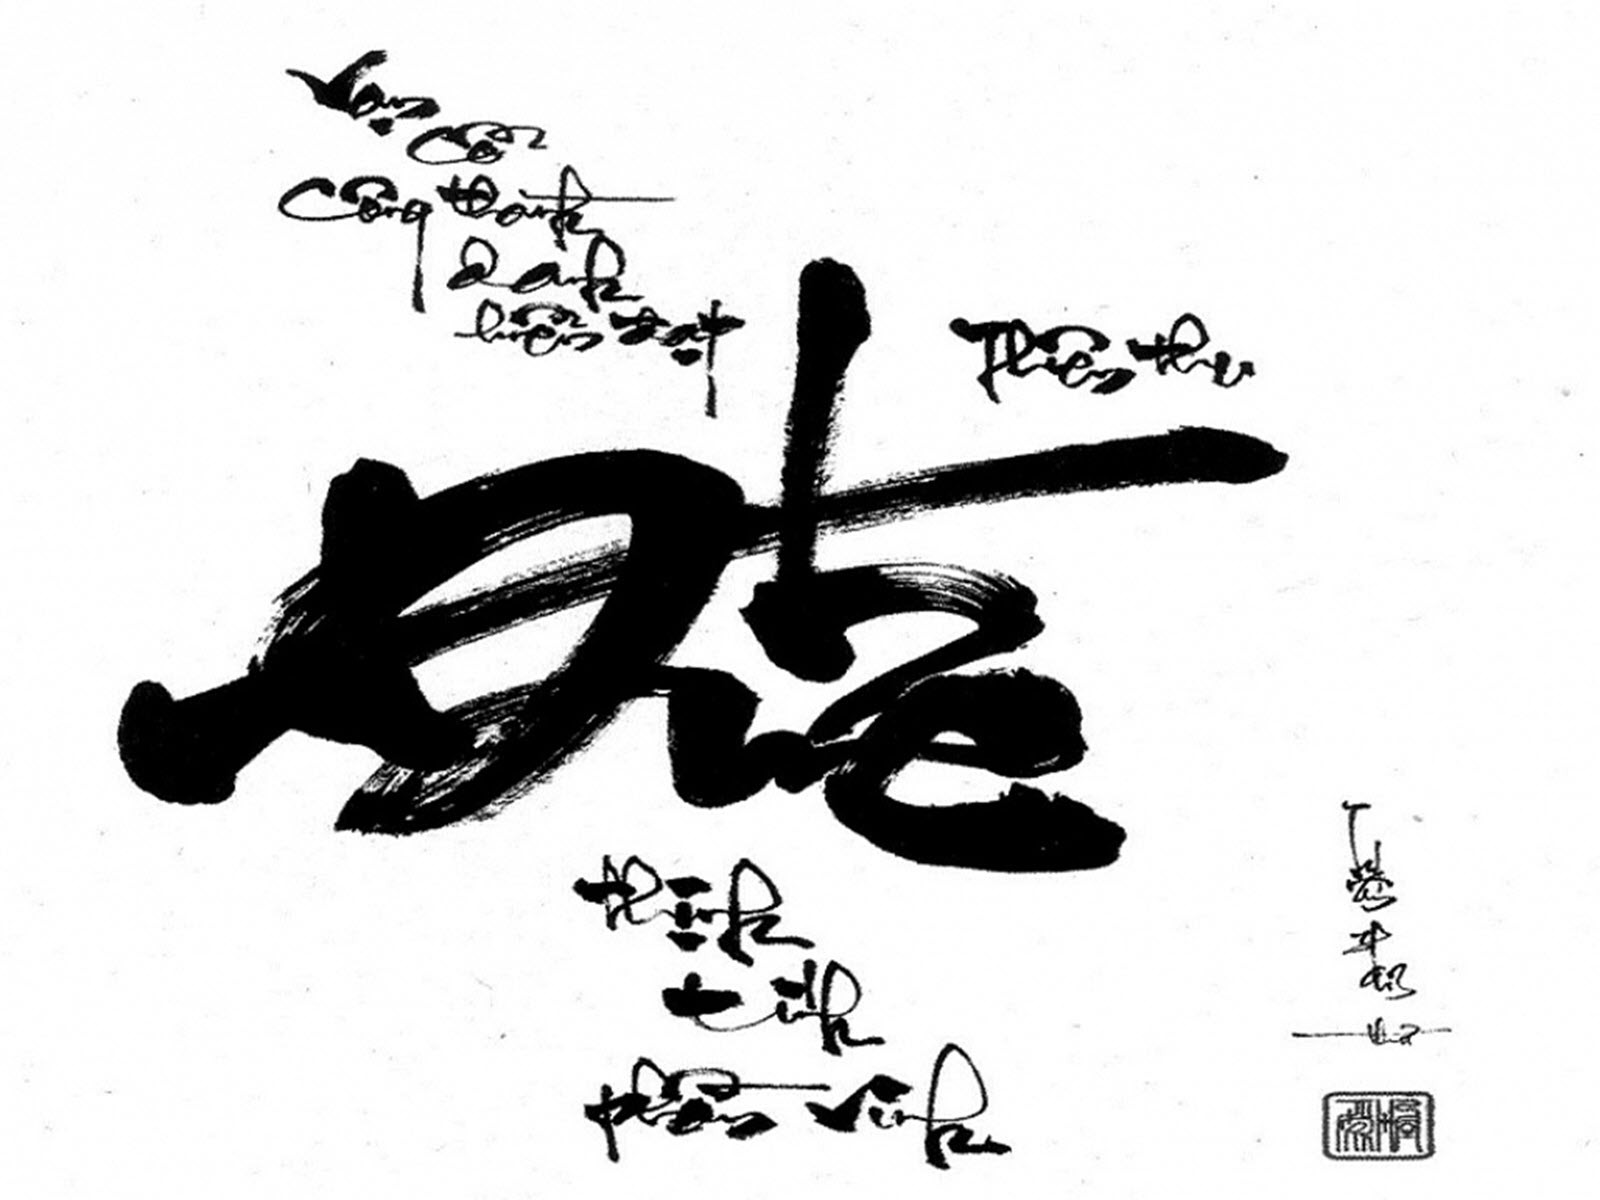 Vạn
cổ
công thành
danh
hiển đạt
Thiên thu
Đức
thịnh
tính
phồn vinh